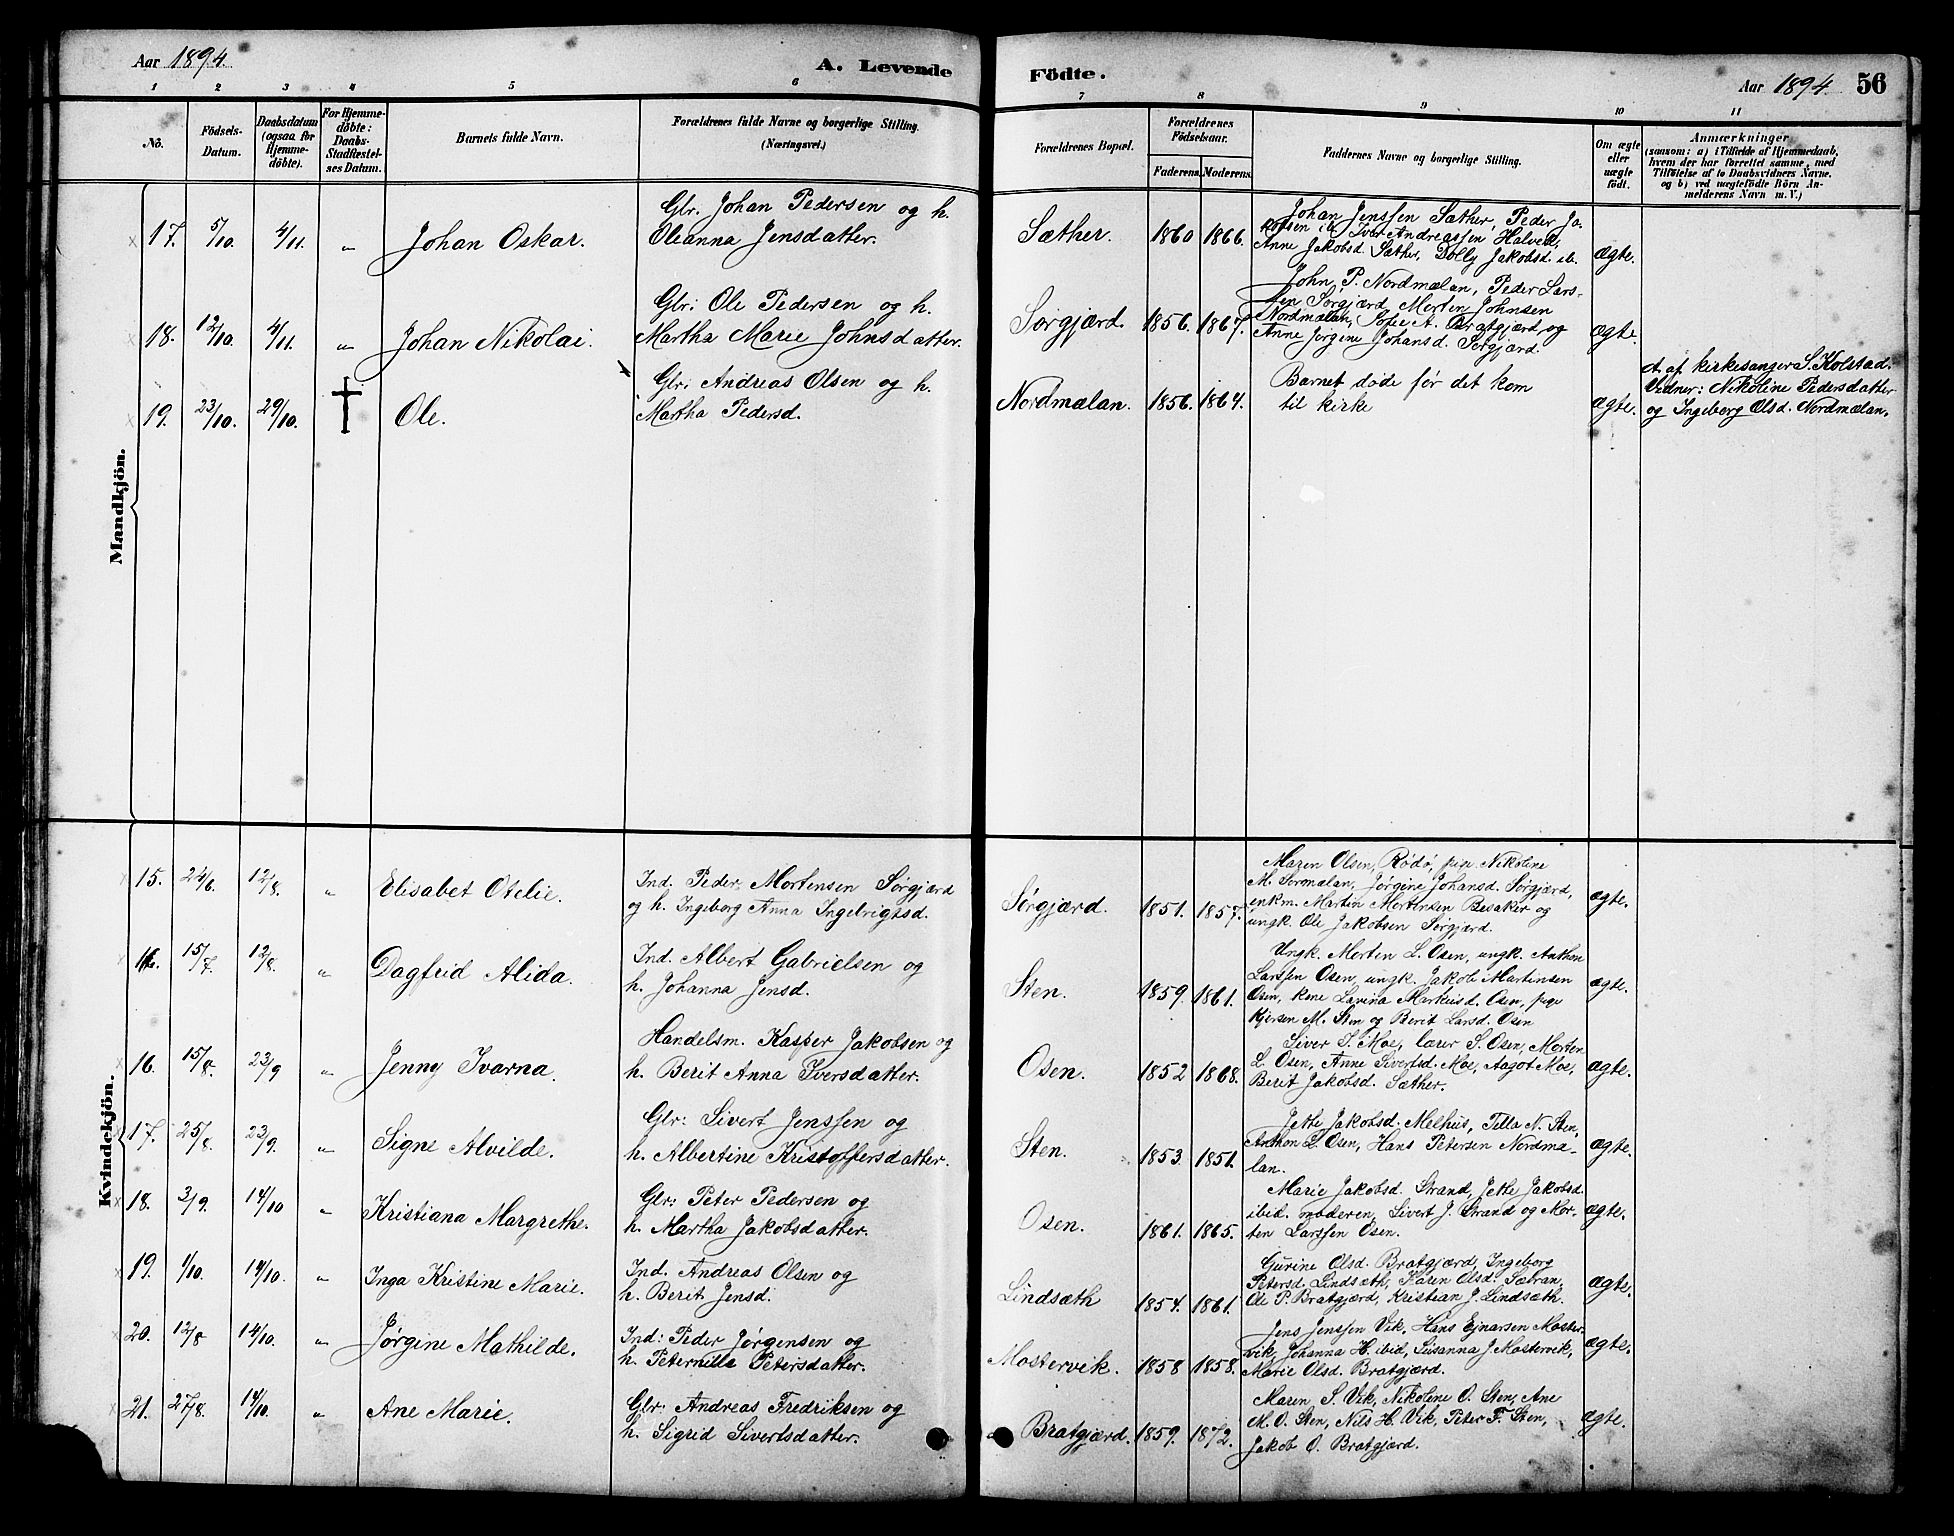 Aar 1894. A. Levende Födte. Aar 1894. 56
1 2 3 4 5 6 7 8 9 10 11
No. Födsels-Datum. Daabsdatum (ogsaa for Hjemme-döbte). For Hjemme-döbte: Daabs-Stadfæstel-ses Datum. Barnets fulde Navn. Forældrenes fulde Navne og borgerlige Stilling. (Næringsvei.)
Forældrenes Bopæl. Forældrenes Födselsaar. Faderens. Moderens. Faddernes Navne og borgerlige Stilling. Om ægte eller uægte født.
Anmærkninger
(saasom: a) i Tilfælde af Hjemmedaab,
hvem der har forrettet samme, med
Tilføielse af to Daabsvidners Navne.
og b) ved uægtefødte Börn An-
melderens Navn m. V.)
Mandkjön.
17. 5/10. 4/11. " Johan Oskar. Glr. Johan Pedersen og h.
Oleanna Jensdatter.
Sæther. 1860 1866. Johan Jenssen Sæther, Peder Ja-
kobsen ib. Iver Andreassen Halved,
Anne Jakobsd. Sæther, Dolly Jakobsd. ib.
ægte.
18. 12/10. 4/11. " Johan Nikolai. Glr: Ole Pedersen og h.
Martha Marie Johnsdatter.
Sørgjærd. 1856. 1867. John P. Nordmælan, Peder Lars-
sen Sørgjærd, Morten Johnsen
Nordmælan, Sofie A. Bratgjærd, og
Anne Jørgine Johansd. Sørgjærd.
ægte.
19. 23/10. 29/10. † Ole. Glr: Andreas Olsen og h.
Martha Pedersd.
Nordmælan. 1856. 1864. Barnet døde før det kom
til kirke
ægte.
d. af kirkesanger S. Kolstad.
Vidner: Nikoline Pedersdatter
og Ingeborg Olsd. Nordmælan.
Kvindekjön.
15. 24/6. 12/8. " Elisabet Otelie. Ind. Peder Mortensen Sørgjærd
og h. Ingeborg Anna Ingebrigtsd.
Sørgjærd. 1851. 1857. Maren Olsen, Rødø, pige Nikoline
M. Sørmælan, Jørgine Johansd. Sørgjærd,
enkm. Martin Mortensen Besaker og
ungk. Ole Jakobsen Sørgjærd.
ægte.
16. 15/7. 12/8. " Dagfrid Alida. Ind. Albert Gabrielsen og
h. Johanna Jensd.
Sten. 1859. 1861. Ungk. Morten L. Osen, ungk. Anthon
Larssen Osen, ungk. Jakob Martinsen
Osen, kone Lavina Markusd. Osen, pige
M. Sten og Berit Larsd. Osen
ægte.
16. 15/8. 23/9 " Jenny Ivarna. Handelsm. Kasper Jakobsen og
h. Berit Anna Iversdatter.
Osen. 1852 1868. Siver S. Moe, lærer S. Osen, Morten
L. Osen, Anne Sivertsd. Moe, Aagot Moe,
Berit Jakobsd. Sæther.
ægte.
17. 25/8. 23/9. " Signe Alvilde. Glr: Sivert Jenssen og
h. Albertine Kristoffersdatter.
Sten. 1853. 1851. Jette Jakobsd. Melhus, Tilla N. Sten,
Anthon L. Osen, Hans Petersen Nordmæ-
lan.
ægte.
18. 3/9. 14/10 " Kristiana Margrethe. Glr: Peter Pedersen og
h. Martha Jakobsdatter.
Osen. 1861. 1865. Marie Jakobsd. Strand, Jette Jakobsd.
ibid. moderen, Sivert J. Strand og Mor-
ten Larssen Osen.
ægte.
19. 1/10. 14/10. " Inga Kristine Marie. Ind. Andreas Olsen og
h. Berit Jensd.
Lindsæth 1854. 1861. Gurine Olsd. Bratgjærd, Ingeborg
Petersd. Lindsæth, Karen Olsd. Sætran,
Ole P. Bratgjærd, Kristian J. Lindsæth.
ægte.
20. 12/8 14/10. " Jørgine Mathilde. Ind: Peder Jørgensen og
h. Peternilla Petersdatter.
Mostervik. 1858 1858. Jens Jenssen Vik, Hans Ejnarsen Moster-
vik, Johanna H. ibid, Susanna J. Mostervik,
Marie Olsd. Bratgjærd.
ægte.
21. 27/8. 14/10. " Ane Marie. Glr: Andreas Fredriksen og
h. Sigrid Sivertsdatter.
Bratgjærd. 1859. 1872. Maren S. Vik, Nikoline O. Sten, Ane
M. O. Sten, Nils H. Vik, Peter F. Sten,
Jakob O. Bratgjærd.
ægte.